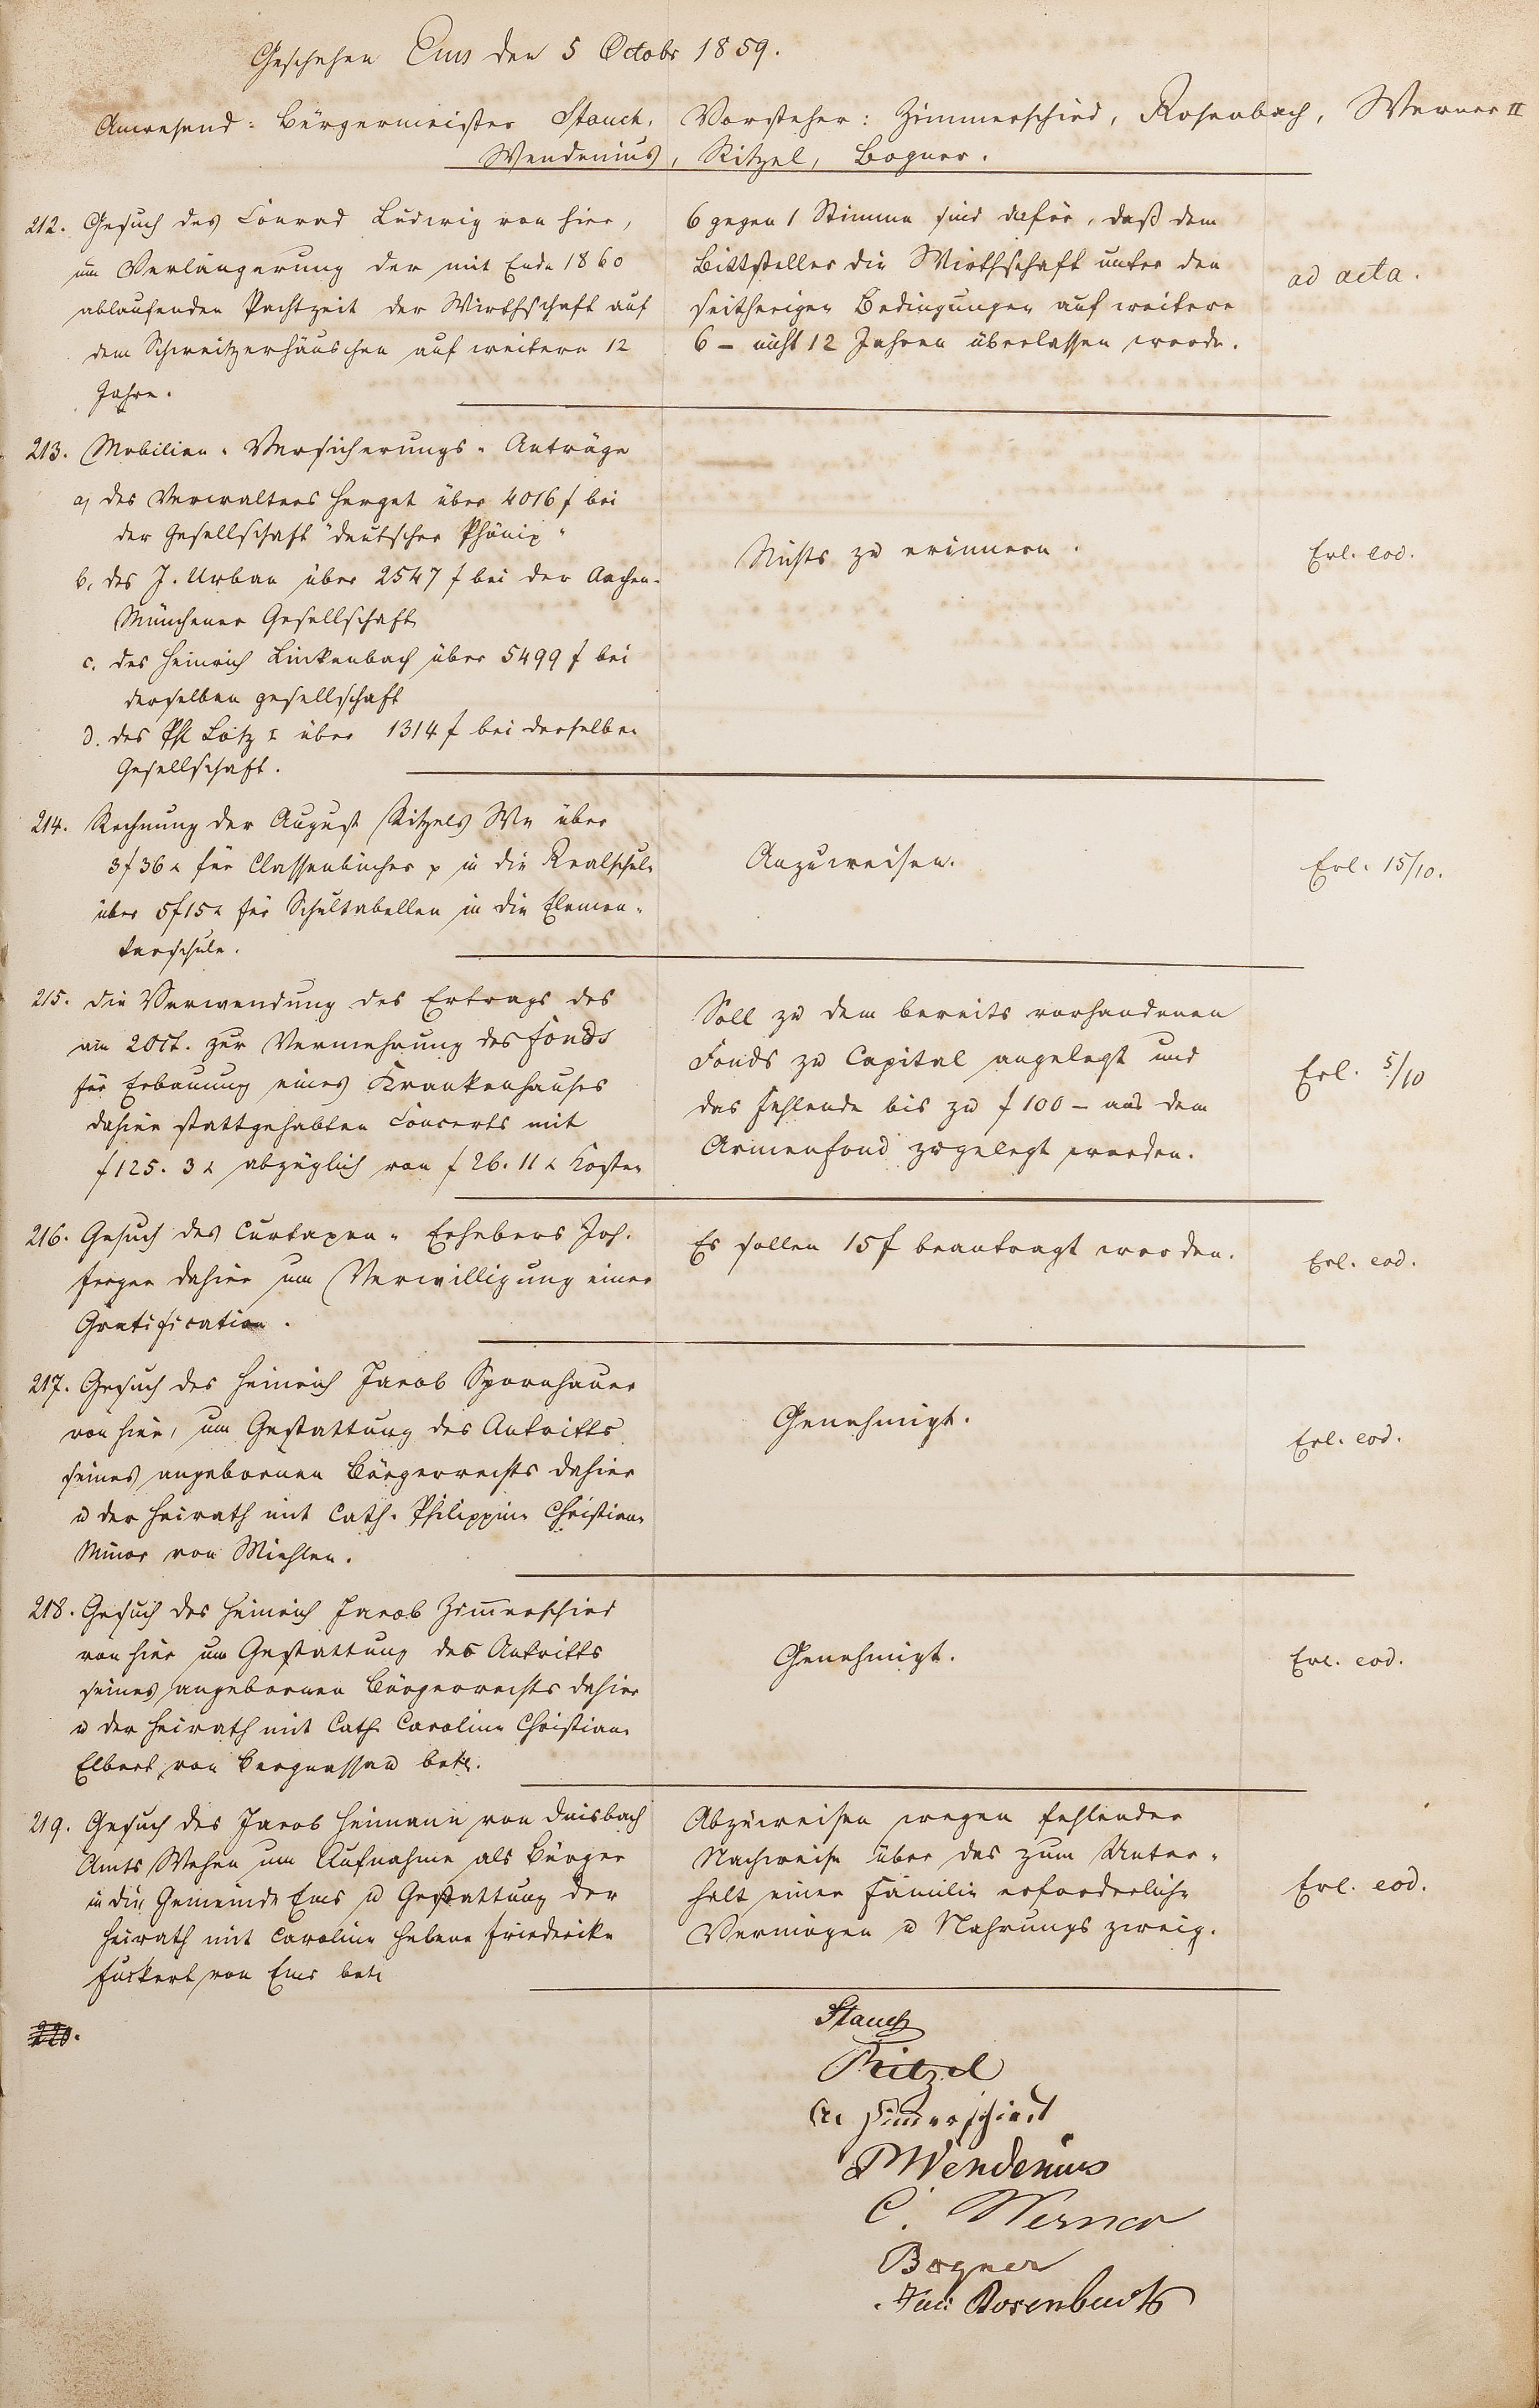 Geschehen Ems den 5 Octobr 1859.
Anwesend: Bürgermeister Stauch, Vorsteher: Zimmerschied, Rosenbach, Werner II
Wendenius, Ritzel, Bogner.
212. Gesuch des Conrad Ludwig von hier,
um Verlängerung der mit Ende 1860
ablaufenden Pachtzeit der Wirthschaft auf
dem Schweitzerhäuschen auf weitere 12
Jahre.
6 gegen 1 Stimme sind dafür, daß dem
Bittsteller die Wirthschaft unter den
seitherigen Bedingungen auf weitere
6 - nicht 12 Jahren überlassen werde.
ad acta.
213. Mobilien-Versicherungs-Anträge
a, des Verwalters Herget über 4016 f bei
der Gesellschaft "deutscher Phönix"
b, des J. Urban über 2547 f bei der Aachen-
Münchener Gesellschaft
c. des Heinrich Linkenbach über 5499 f bei
derselben Gesellschaft
d. des Phl Lotz I über 1314 f bei derselben
Gesellschaft.
Nichts zu erinnern.
Erl. eod.
214. Rechnung der August Ritzels We über
3f 36 x für Classenbücher p in die Realschule
über 5f 15 x für Schultabellen in die Elemen-
tarschule.
Anzuweisen.
Erl. 15/10.
215. die Verwendung des Ertrags des
am 2 Oct. zur Vermehrung des Fonds
für Erbauung eines Krankenhauses
dahier stattgehabten Concerts mit
f 125. 3 x abzüglich von f 26. 11 x Kosten
Soll zu dem bereits vorhandenen
Fonds zu Capital angelegt und
das Fehlende bis zu f 100 - aus dem
Armenfond zugelegt werden.
Erl. 5/10
216. Gesuch des Curtaxen-Erhebers Joh.
dahier um Verwilligung einer
Gratification.
Es sollen 15 f beantragt werden.
Erl. eod.
217. Gesuch des Heinrich Jacob Spornhauer
von hier, um Gestattung des Antritts
seines angebornen Bürgerrechts dahier
u der Heirath mit Cath. Philippine Christiane
Minor von Miehlen.
Genehmigt.
Erl. eod.
218. Gesuch des Heinrich Jacob Zimmerschied
von hier um Gestattung des Antritts
seines angebornen Bürgerrechts dahier
u der Heirath mit Cath Caroline Christiane
Elbert von Bergnassau betr.
Genehmigt.
Erl. eod.
219. Gesuch des Jacob Heimann von Daisbach
Amts Wehen um Aufnahme als Bürger
in die Gemeinde Ems u Gestattung der
Heirath mit Caroline Helene Friederike
Fuckert von Ems betr
Abzuweisen wegen fehlender
Nachweise über das zum Unter-
halt einer Familie erforderliche
Vermögen u Nahrungszweig.
Erl. eod.
220.
Stauch
Ritzel
Zimmerschied
P Wendenius
C. Werner
Bogner
Rosenbach